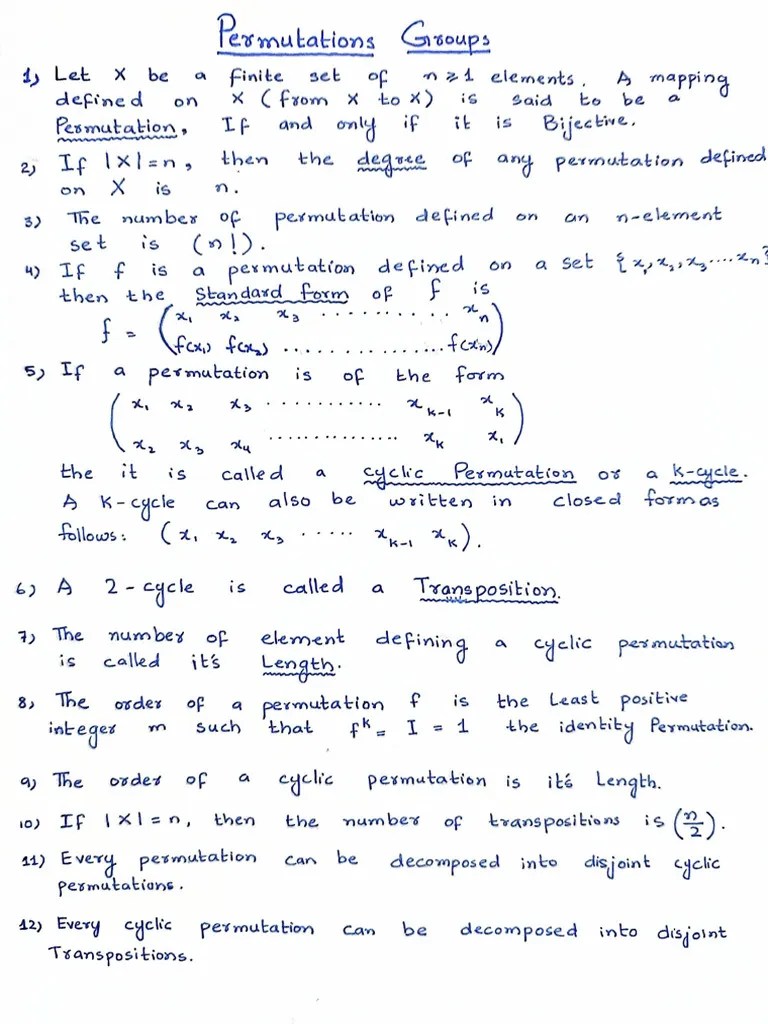 Permutations Groups
1) Let X be a finite set of n ≥ 1 elements. A mapping
defined on X (from X to X) is said to be a
Permutation, If and only if it is Bijective.
2) If |X| = n, then the degree of any permutation defined
on X is n.
3) The number of permutation defined on an n-element
set is (n!).
4) If f is a permutation defined on a set {x₁, x₂, x₃ .... xₙ}
then the Standard form of f is
f = ( x₁ x₂ x₃ .......... xₙ
f(x₁) f(x₂) ............... f(xₙ) )
5) If a permutation is of the form
( x₁ x₂ x₃ ........... x_{k-1} x_k
x₂ x₃ x₄ ............... x_k x₁ )
the it is called a cyclic Permutation or a k-cycle.
A k-cycle can also be written in closed form as
follows: (x₁ x₂ x₃ ..... x_{k-1} x_k).
6) A 2-cycle is called a Transposition.
7) The number of element defining a cyclic permutation
is called it's Length.
8) The order of a permutation f is the Least positive
integer m such that f^k = I = 1 the identity Permutation.
9) The order of a cyclic permutation is it's Length.
10) If |X| = n, then the number of transpositions is (n/2).
11) Every permutation can be decomposed into disjoint cyclic
permutations.
12) Every cyclic permutation can be decomposed into disjoint
Transpositions.